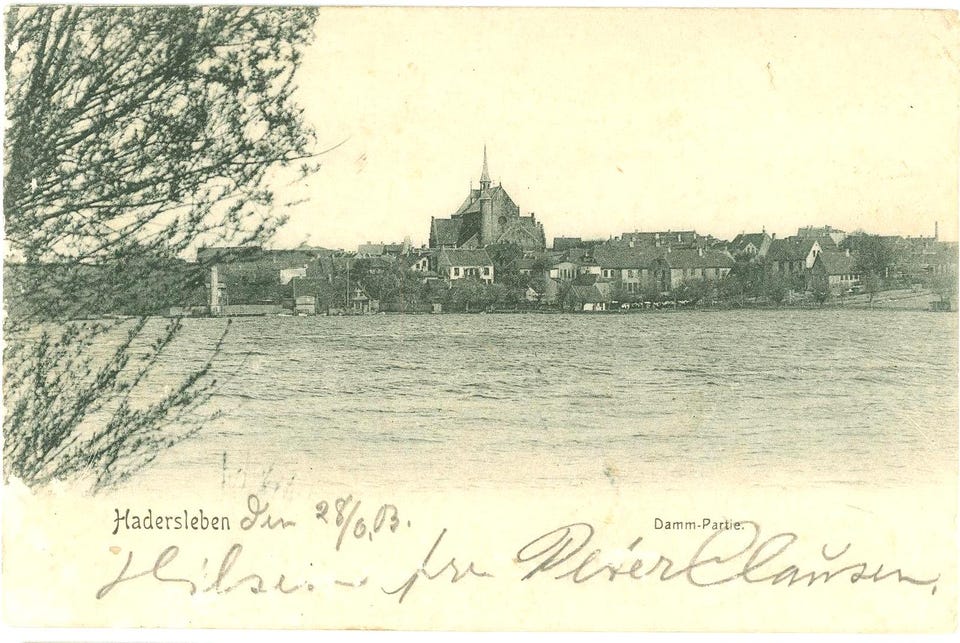 Hadersleben den 28/6.03. Damm-Partie.
Hilsen fra Peter Clausen.